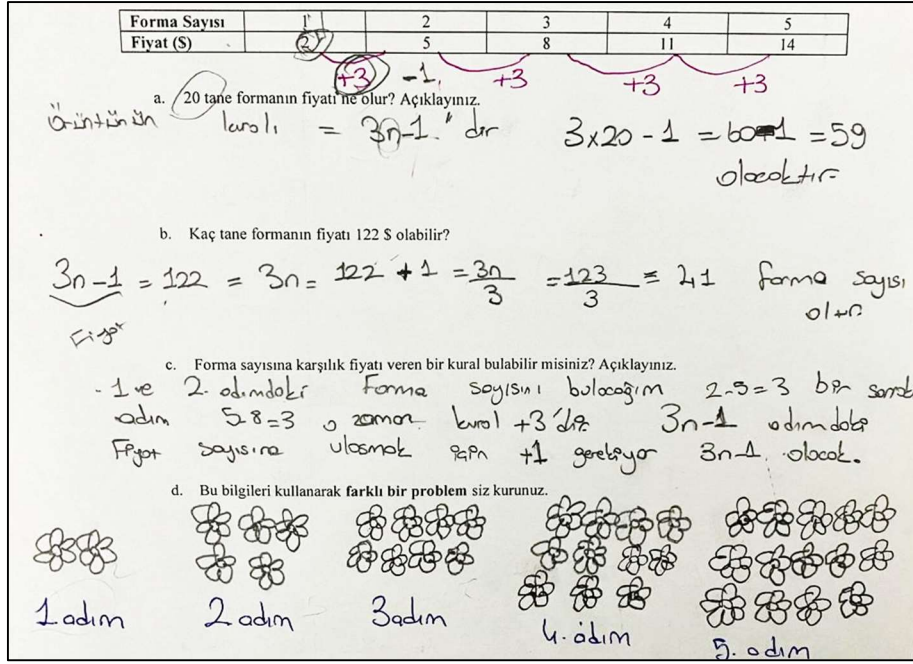 Forma Sayısı 1 2 3 4 5
Fiyat ($) 2 5 8 11 14
+3 -1 +3 +3 +3
a. 20 tane formanın fiyatı ne olur? Açıklayınız.
Örüntünün kuralı = 3n-1." dir 3x20-1 = 60-1 = 59
olacaktır
b. Kaç tane formanın fiyatı 122 $ olabilir?
3n-1 = 122 = 3n = 122 + 1 = 3n/3 = 123/3 = 41 forma sayısı
olur
Fiyat
c. Forma sayısına karşılık fiyatı veren bir kural bulabilir misiniz? Açıklayınız.
- 1 ve 2. adımdaki forma sayısını bulacağım 2-5=3 bir sonraki
adım 5-8=3 o zaman kural +3'dir 3n-1 adımdaki
Fiyat sayısına ulaşmak için +1 gerekiyor 3n-1. olacak.
d. Bu bilgileri kullanarak farklı bir problem siz kurunuz.
1 adım 2 adım 3 adım 4. adım 5. adım